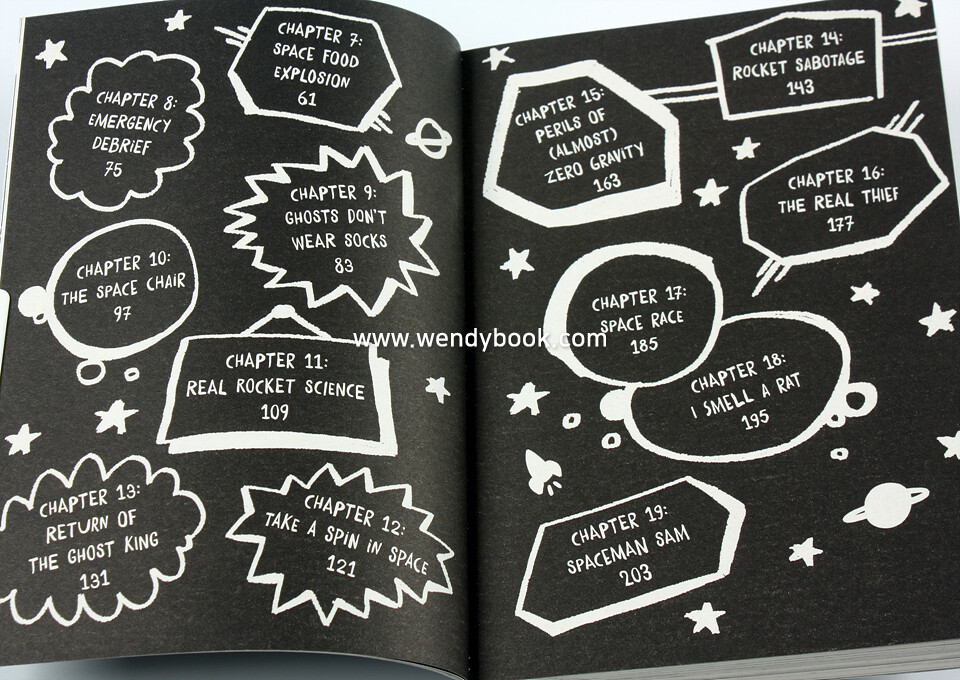 CHAPTER 7:
SPACE FOOD
EXPLOSION
61
CHAPTER 8:
EMERGENCY
DEBRIEF
75
CHAPTER 9:
GHOSTS DON'T
WEAR SOCKS
83
CHAPTER 10:
THE SPACE CHAIR
97
CHAPTER 11:
REAL ROCKET SCIENCE
109
CHAPTER 12:
TAKE A SPIN IN SPACE
121
CHAPTER 13:
RETURN OF
THE GHOST KING
131
CHAPTER 14:
ROCKET SABOTAGE
143
CHAPTER 15:
PERILS OF
(ALMOST)
ZERO GRAVITY
163
CHAPTER 16:
THE REAL THIEF
177
CHAPTER 17:
SPACE RACE
185
CHAPTER 18:
I SMELL A RAT
195
CHAPTER 19:
SPACEMAN SAM
203
www.wendybook.com